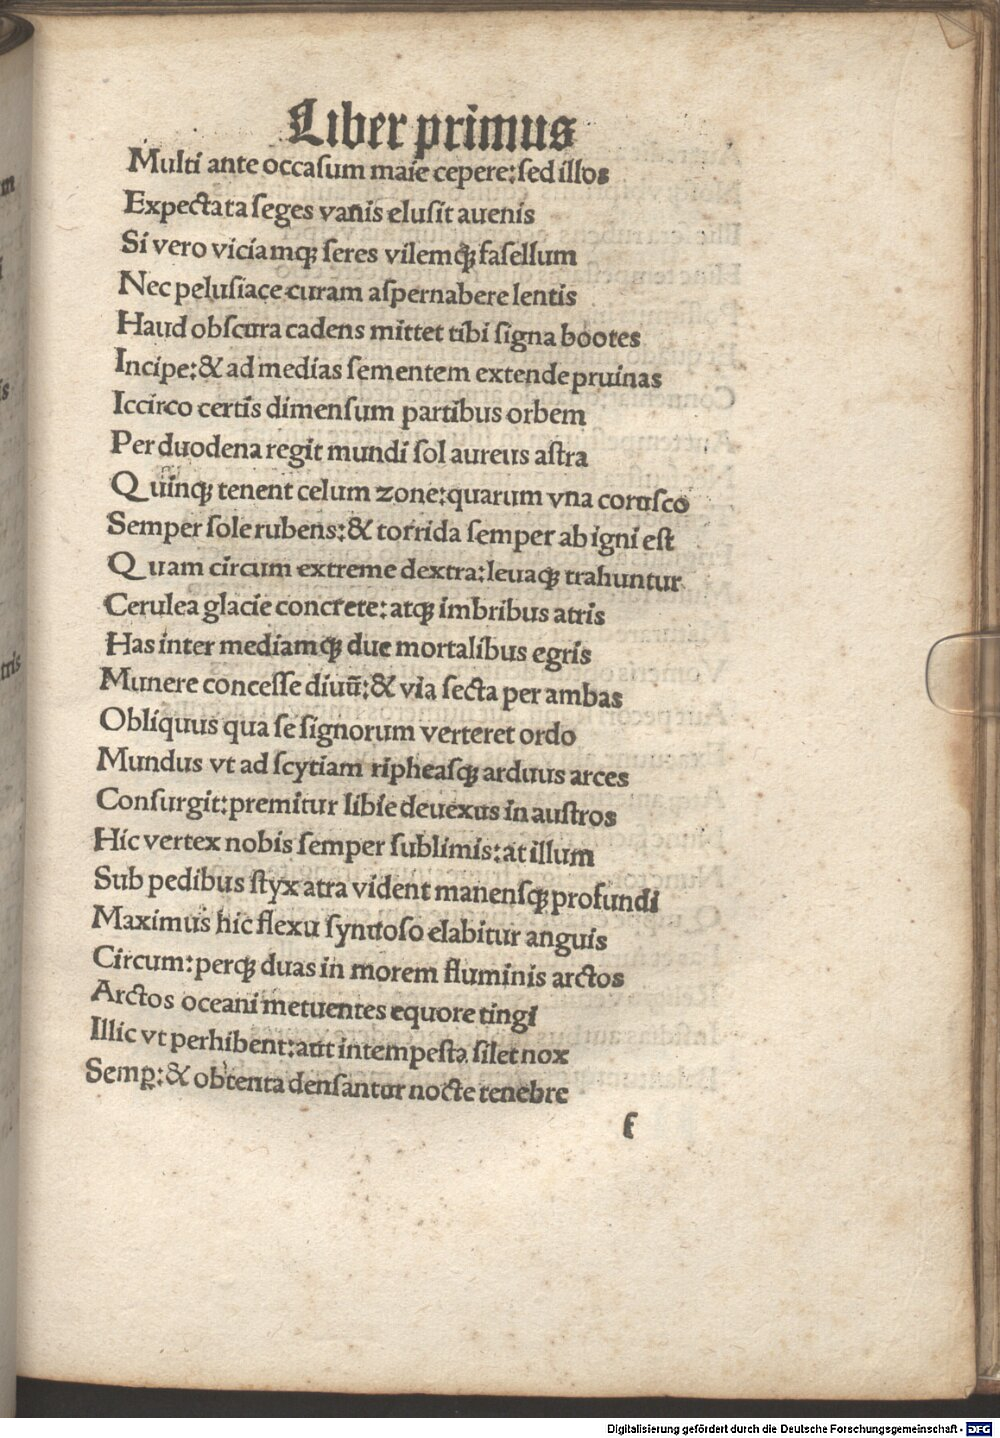 Liber primus
Multi ante occaſum maie cepere:ſed illos
Expectata ſeges vanis eluſit auenis
Si vero viciamqꝫ ſeres vilemqꝫ faſellum
Nec peluſiace curam aſpernabere lentis
Haud obſcura cadens mittet tibi ſigna bootes
Incipe:& ad medias ſementem extende pruinas
Iccirco certis dimenſum partibus orbem
Per duodena regit mundi ſol aureus aſtra
Quinqꝫ tenent celum zone:quarum vna coruſco
Semper ſole rubens:& torrida ſemper ab igni eſt
Quam circum extreme dextra:leuaqꝫ trahuntur
Cerulea glacie concrete:atqꝫ imbribus atris
Has inter mediamqꝫ due mortalibus egris
Munere conceſſe diuū:& via ſecta per ambas
Obliquus qua ſe ſignorum verteret ordo
Mundus vt ad ſcytiam ripheaſqꝫ arduus arces
Conſurgit:premitur libie deuexus in auſtros
Hic vertex nobis ſemper ſublimis:at illum
Sub pedibus ſtyx atra vident manenſqꝫ profundi
Maximus hic flexu ſynuoſo elabitur anguis
Circum:perqꝫ duas in morem fluminis arctos
Arctos oceani metuentes equore tingi
Illic vt perhibent:aut intempeſta ſilet nox
Semꝑ:& obtenta denſantur nocte tenebre
f
Digitalisierung gefördert durch die Deutsche Forschungsgemeinschaft - DFG